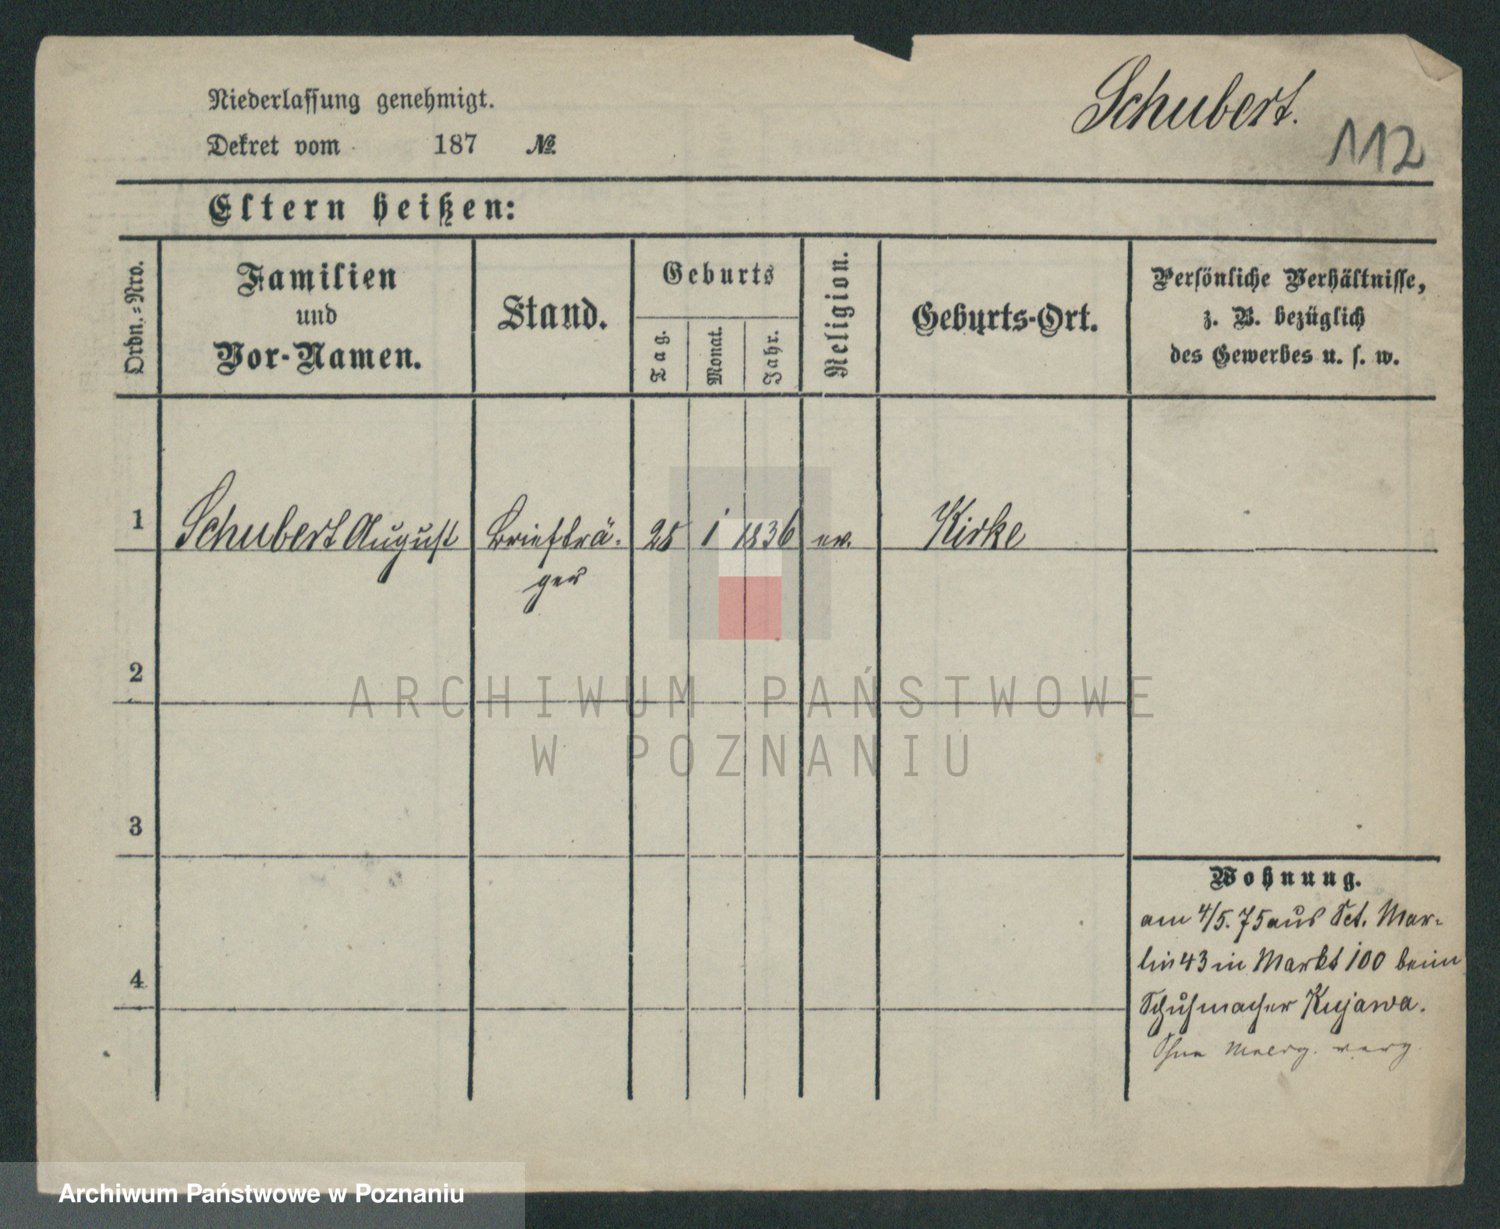 Schubert.
112
Niederlassung genehmigt.
Dekret vom 187 №
Eltern heißen:
Ordn.-Nro.
Familien
und
Vor-Namen.
Stand.
Geburts
Tag.
Monat.
Jahr.
Religion.
Geburts-Ort.
Persönliche Verhältnisse,
z. B. bezüglich
des Gewerbes u. s. w.
1 Schubert August Briefträ- 1 1836 ev. Kirke
ger
2
3
4
Wohnung.
am 4/5. 75 aus Sct. Mar-
tin 43 in Markt 100 beim
Schuhmacher Kujawa.
Ohne
ARCHIWUM PAŃSTWOWE
W POZNANIU
Archiwum Państwowe w Poznaniu